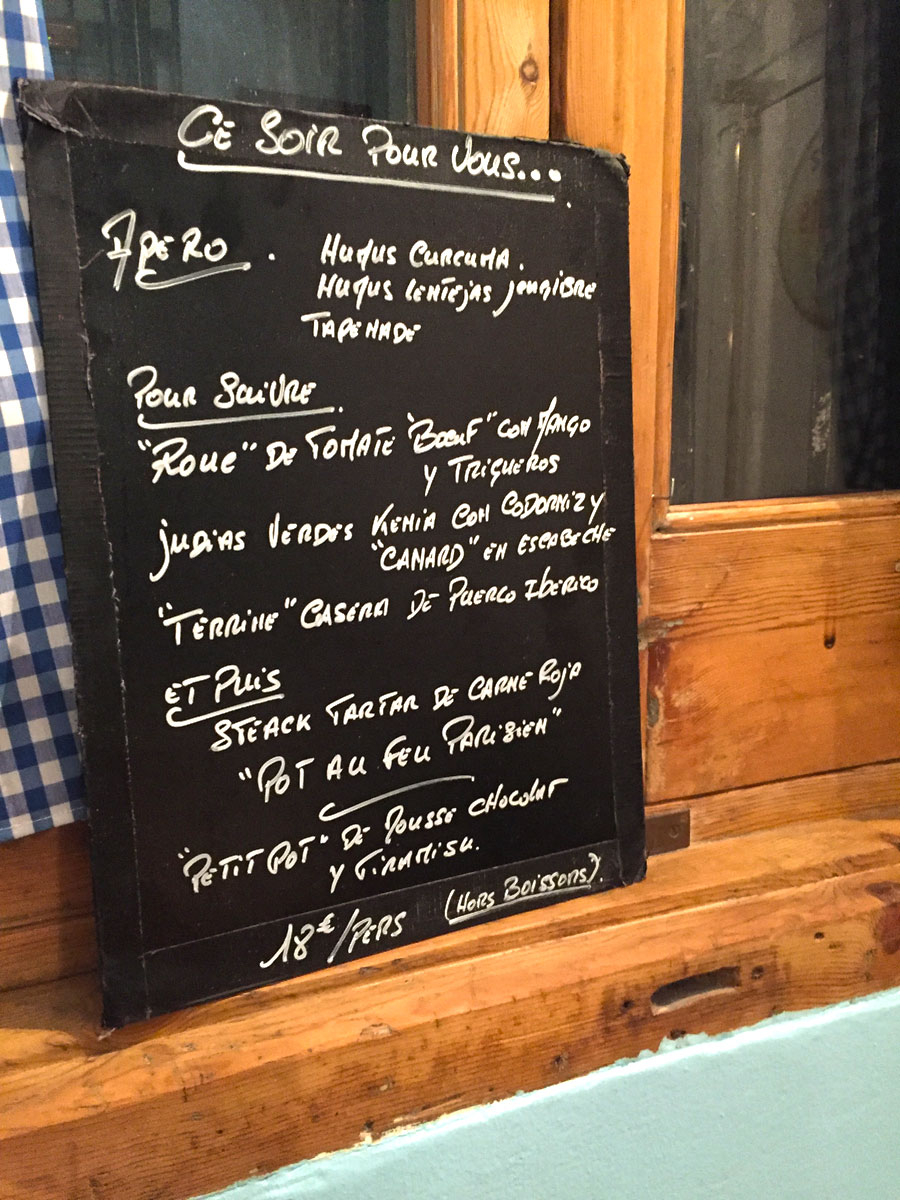 CE SOIR POUR VOUS...
APERO. HUMUS CURCUMA.
HUMUS LENTEJAS JENGIBRE
TAPENADE
POUR SUIVRE.
"ROUE" DE TOMATE "BŒUF" CON MANGO
Y TRIGUEROS
JUDIAS VERDES KENIA CON CODORNIZ Y
"CANARD" EN ESCABECHE
"TERRINE" CASERA DE PUERCO IBERICO
ET PUIS
STEACK TARTAR DE CARNE ROJA
"POT AU FEU PARISIEN"
"PETIT POT" DE MOUSSE CHOCOLAT
Y TIRAMISU.
18€/PERS (HORS BOISSONS).